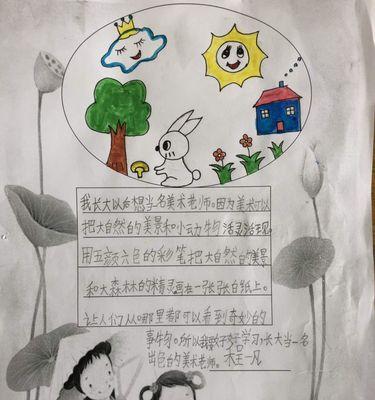 我长大以后想当名美术老师。因为美术可以
把大自然的美景和小动物活灵活现。
用五颜六色的彩笔把大自然的美景
和大森林的精灵画在一张张白纸上。
让人们从哪里都可以看到奇妙的
事物。所以我要好好学习,长大当一名
出色的美术老师。 一凡